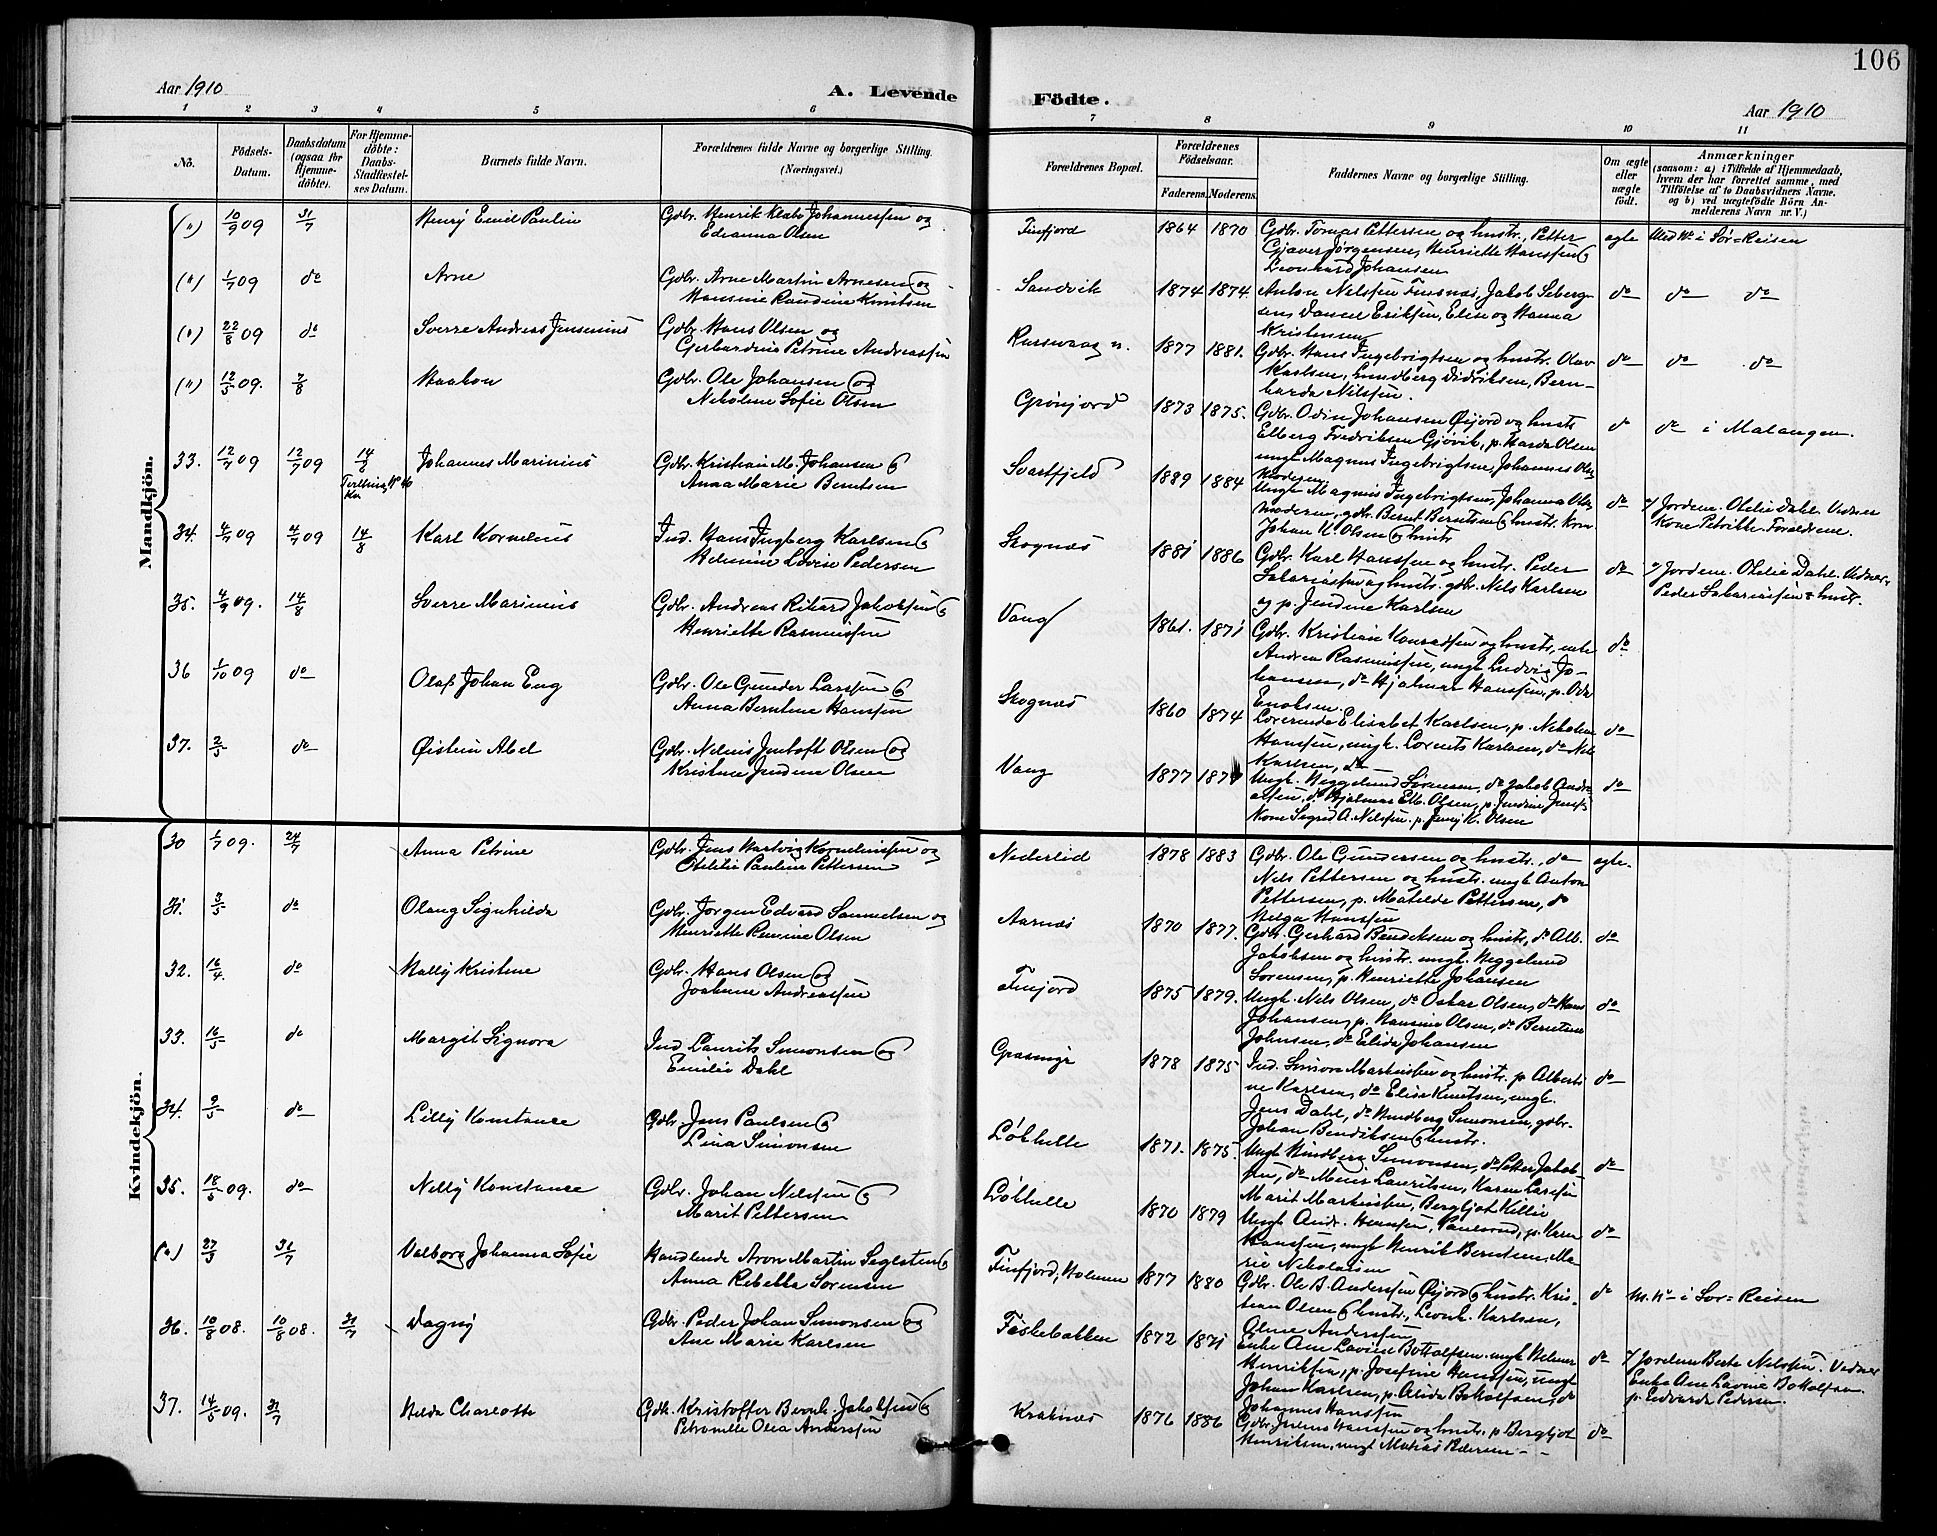 106
Aar 1910
A. Levende Födte.
Aar 1910
1 2 3 4 5 6 7 8 9 10 11
No.
Födsels-
Datum.
Daabsdatum
(ogsaa for
Hjemme-
döbte).
For Hjemme-
döbte:
Daabs-
Stadfæstel-
ses Datum.
Barnets fulde Navn.
Forældrenes fulde Navne og borgerlige Stilling.
(Næringsvei.)
Forældrenes Bopæl.
Forældrenes
Födselsaar.
Faderens. Moderens.
Faddernes Navne og borgerlige Stilling.
Om ægte
eller
uægte
født.
Anmærkninger
(saasom: a) i Tilfælde af Hjemmedaab,
hvem der har forrettet samme, med
Tilföielse af to Daabsvidners Navne,
og b) ved uægtefödte Börn An-
melderens Navn nr. V.)
Mandkjön.
(") 10/9 09 31/7 Henry Emil Paulin Gdbr. Henrik Klæbo Johannessen og
Edianna Olsen
Finfjord 1864 1870 Gdbr. Tomas Pettersen og hustr., Petter
Gjæver Jørgensen, Henriette Hanssen &
Leonhard Johansen
ægte Med No i Sør=Reisen
(") 1/7 09 do Arne Gdbr. Arne Martin Arnesen og
Hansine Raudine Knutsen
Sandvik 1874 1874 Anton Nilssen Finsnæs, Jakob Seberg-
sen, Daniel Eriksen, Elise og Hanna
Kristensen
do do do
(") 22/8 09 do Sverre Andreas Jensenius Gdbr. Hans Olsen og
Gerhardine Petrine Andreassen
1877 1881. Gdbr. Hans Ingebrigtsen og hustr. Olav
Karlsen, Lundberg Didriksen, Bern-
harda Nilssen.
do do do
(") 12/5 09. 7/8 Haakon Gdbr. Ole Johansen og
Nikoline Sofie Olsen
Grønjord 1873 1875. Gdbr. Odin Johansen Øijord og hustr
Elberg Fredriksen Gjøvik, p. Harda Olsen
ungk Magnus Ingebrigtsen, Johannes Ols.
do do i Malangen.
33. 12/7 09 12/7 09 14/8 Johannes Marinius Gdbr. Kristian M. Johansen &
Anna Marie Berntsen
Svartfjeld 1889 1884 Ungk. Magnus Ingebrigtsen, Johanna Ols.
gdbr. Bernt Berntsen & hustr.
Johan U. Olsen & hustr
do v/ Jordem. Otelie Dahl. Vidner
Kone Petrikke. Forældrene.
34. 4/7 09 4/7 09 14/8 Karl Kornelius Ind. Hans Ingberg Karlsen &
Helmine Lovise Pedersen
Skognæs 1881 1886 Gdbr. Karl Hanssen og hustr. Peder
Sakariassen og hustr. gdbr. Nils Karlsen
og p. Jendine Karlsen
do v/ Jordem. Otelie Dahl. Vidner,
Peder Sakariassen & hustr.
35. 4/9 09. 14/8 Sverre Marinius Gdbr. Andreas Rikard Jakobsen &
Henriette Rasmussen
Vang 1861. 1871 Gdbr. Kristian Konradsen og hustr, enke
Andrea Rasmussen, ungk Ludvig Jo-
hansen, do Hjalmar Hanssen, p. Oda
Enoksen.
do
36 1/10 09 do Olaf Johan Eng Gdbr. Ole Gunder Larssen &
Anna Berntine Hanssen
Skognæs 1860 1874 Elisabet Karlsen, p. Nikoline
Hanssen, ungk. Lorents Karlsen, do Nils
Karlsen, do
do
37. 2/5 do Øistein Abel Gdbr. Nelius Jentoft Olsen og
Kristine Jendine Olsen
Vang 1877 Ungk. Heggelund Sørensen, do Jakob Andre-
assen, do Hjalmar Elb. Olsen, p. Jendine
Kone Sigrid A. Nilssen, p. Jenny K. Olsen
do
Kvindekjön.
30 1/7 09. 24/7 Anna Petrine Gdbr. Jens Hartvig Korneliussen og
Otelie Pauline Pettersen
Nederlid 1878 1883 Gdbr. Ole Gundersen og hustr., do
Nils Pettersen og hustr. ungk Anton
Pettersen, p. Matilde Pettersen, do
Helga Hanssen
ægte.
31. 3/5 do Olaug Signhilda Gdbr. Jørgen Edvard Samuelsen og
Henriette Remine Olsen
Aarnæs 1870 1877. Gdbr. Gerhard Bendiksen og hustr, do Alb.
Jakobsen og hustr. ungk. Heggelund
Sørensen, p. Henriette Johansen
do
32. 16/4 do Hally Kristine Gdbr. Hans Olsen &
Josefine Andreassen
Finjord 1875 1879. Ungk. Nils Olsen, do Oskar Olsen, do Hans
Johansen, p. Hansine Olsen, do Berntine
Johnsen, do Elida Johansen
do
33. 16/5 do Margit Signora Ind. Laurits Simonsen &
Emilie Dahl
Græsmyr 1878 1875 Ind. Simon Markussen og hustr. p Alberti-
ne Karlsen, do Elise Knutsen, ungk.
Jens Dahl, do Hindberg Simonsen, gdbr.
Johan Bendiksen & hustr.
do
34. 9/5 do Lilly Konstance Gdbr. Jens Paulsen &
Lina Simonsen
Løkhelle 1871. 1875. Ungk Hindberg Simonsen, do Petter Jakob-
sen, do Meier Lauritsen, Karen Larssen
Marit Markussen, Bergljot Killie
do
35. 18/5 09. do Nelly Konstance Gdbr. Johan Nilssen &
Marit Pettersen
Løkhelle 1870 1879 Ungk Andr. Hanssen, p. Karen
Hanssen, ungk Henrik Berntsen, Ma-
rie Nikolaisen
do
(") 27/3 31/7 Valborg Johanna Sofie Handlende Aron Martin Seglsten &
Anna Rebekka Sørensen
Finfjord, Holmen 1877 1880 Gdbr. Ole A. Anderssen Øijord & hustr. Kris-
tian Olsen & hustr., Leonh. Karlsen,
Oline Anderssen
do M. No i Sør=Reisen
36. 10/8 08. 10/8 08. 31/7 Dagny Gdbr. Peder Johan Simonsen &
Ane Marie Karlsen
Fiskebakken 1872 1871 Enke Ane Lavine Bottolfsen. ungk Helmer
Henriksen, p. Josefine Hanssen, ungk
Johan Karlsen, p. Alida Bottolfsen, do
Johannes Hanssen
do v/ Jordem Berte Nilssen. Vidner
Enke Ane Lavine Bottolfsen
p. Edvarda Pedersen.
37. 14/5 09. 31/7 Hilda Charlotte Gdbr. Kristoffer Bernh. Jakobsen &
Petronille Olea Anderssen
Kraknæs 1876 1886 Gdbr. Julius Hanssen og hustr. p Bergljot
Henriksen, ungk Matias Pedersen
do